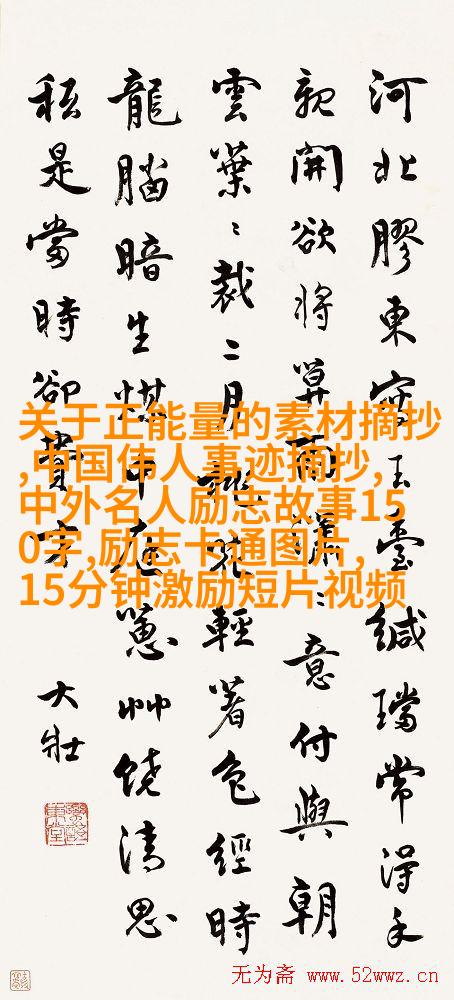 河北膠東寄玉臺緘璫常得手
親開欲將面〻意付與朝
雲葉〻裁二月花輕著色經時
龍腦暗生煤中庭蕙艸饒清思
秖是當時卻費才
大壯
关于正能量的素材摘抄
,中国伟人事迹摘抄,
中外名人励志故事15
0字,励志卡通图片,
15分钟激励短片视频
无为斋 www.52wwz.cn